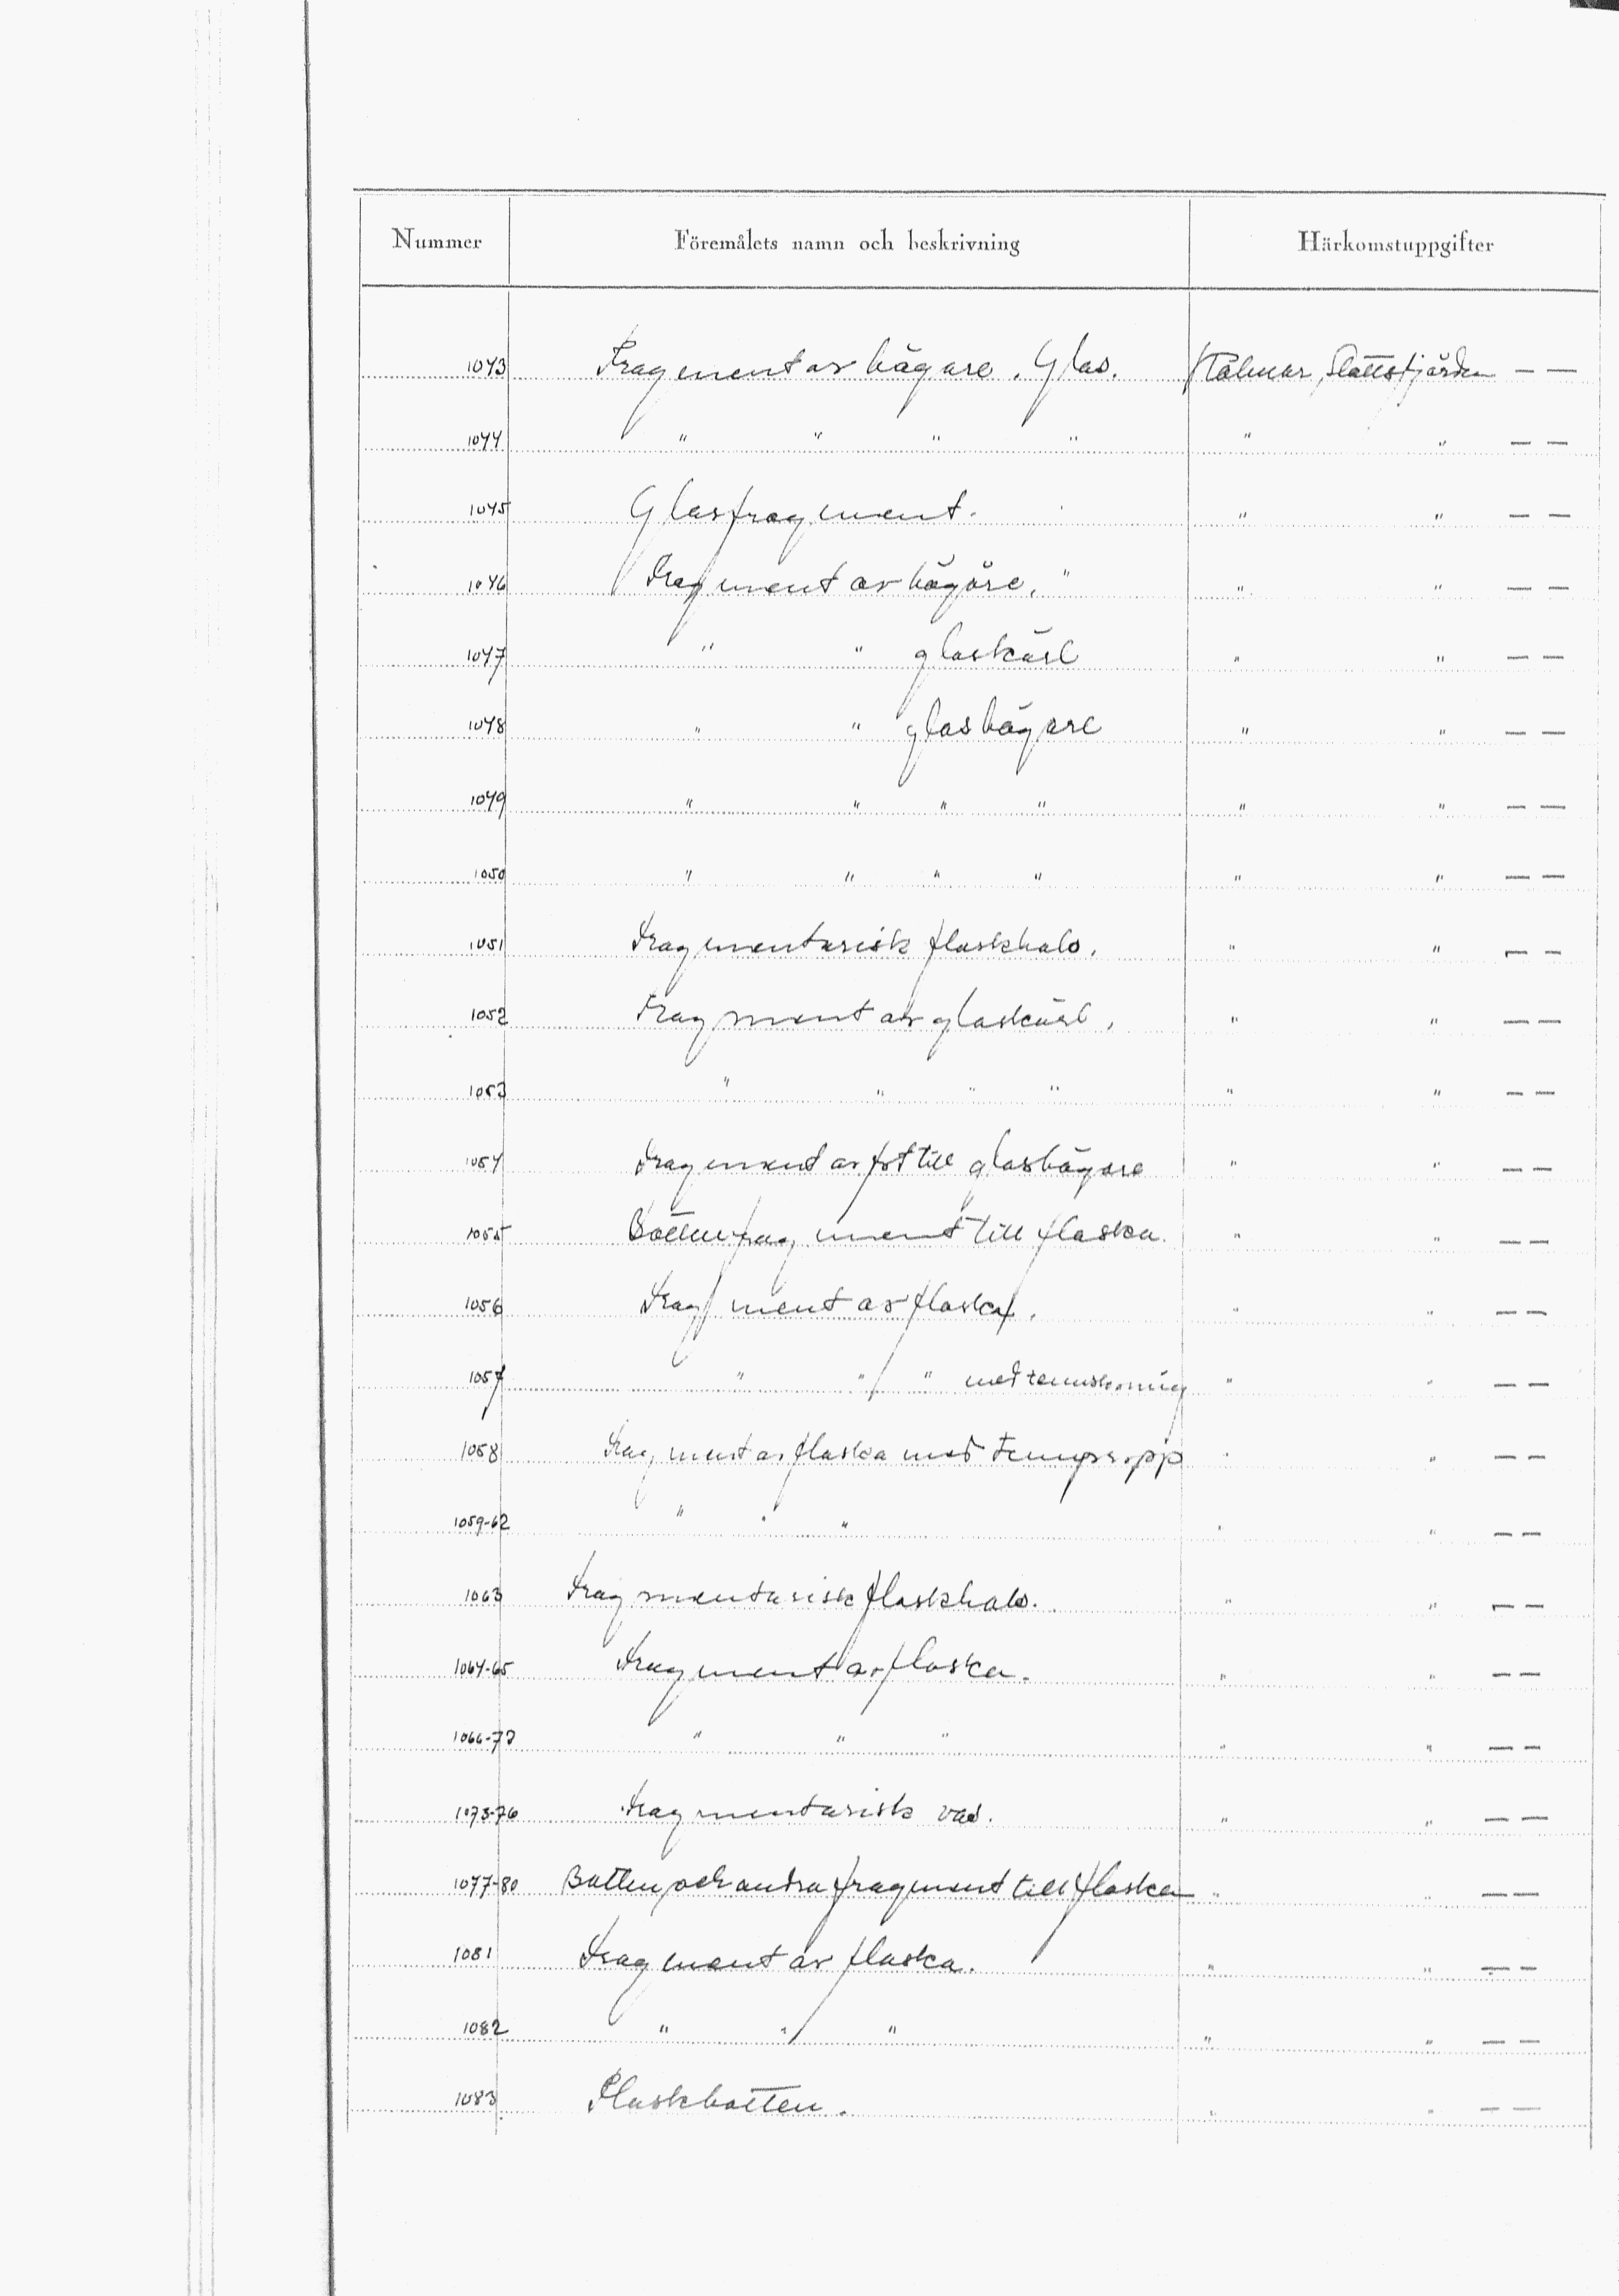 Nummer Föremålets namn och beskrivning Härkomstuppgifter
1043 Fragment av bägare. Glas. Kalmar, Slottsfjärden — —
1044 " " " " " " — —
1045 Glasfragment. " " — —
1046 Fragment av bägare, " " " — —
1047 " " glaskärl " " — —
1048 " " glasbägare " " — —
1049 " " " " " " — —
1050 " " " " " " — —
1051 Fragmentarisk flaskhals. " " — —
1052 Fragment av glaskärl, " " — —
1053 " " " " " " — —
1054 Fragment av fot till glasbägare " " — —
1055 Bottenfragment till flaska. " " — —
1056 Fragment av flaska. " " — —
1057 " " " med tennskoning " " — —
1058 Fragment av flaska med " " — —
1059-62 " " " " " — —
1063 Fragmentarisk flaskhals. " " — —
1064-65 Fragment av flaska. " " — —
1066-72 " " " " " — —
1073-76 Fragmentarisk vas. " " — —
1077-80 Botten och andra fragment till flaska " " — —
1081 Fragment av flaska. " " — —
1082 " " " " " — —
1083 Flaskbotten. " " — —